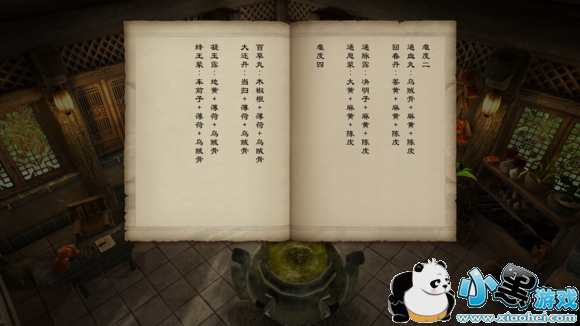 难度二
通血丸：乌贼骨+麻黄+陈皮
回春丹：姜黄+麻黄+陈皮
通脉露：决明子+麻黄+陈皮
通息浆：大黄+麻黄+陈皮
难度四
百草丸：木椒根+薄荷+乌贼骨
大还丹：当归+薄荷+乌贼骨
凝玉露：地黄+薄荷+乌贼骨
蜂王浆：车前子+薄荷+乌贼骨
小黑游戏
www.xiaohei.com